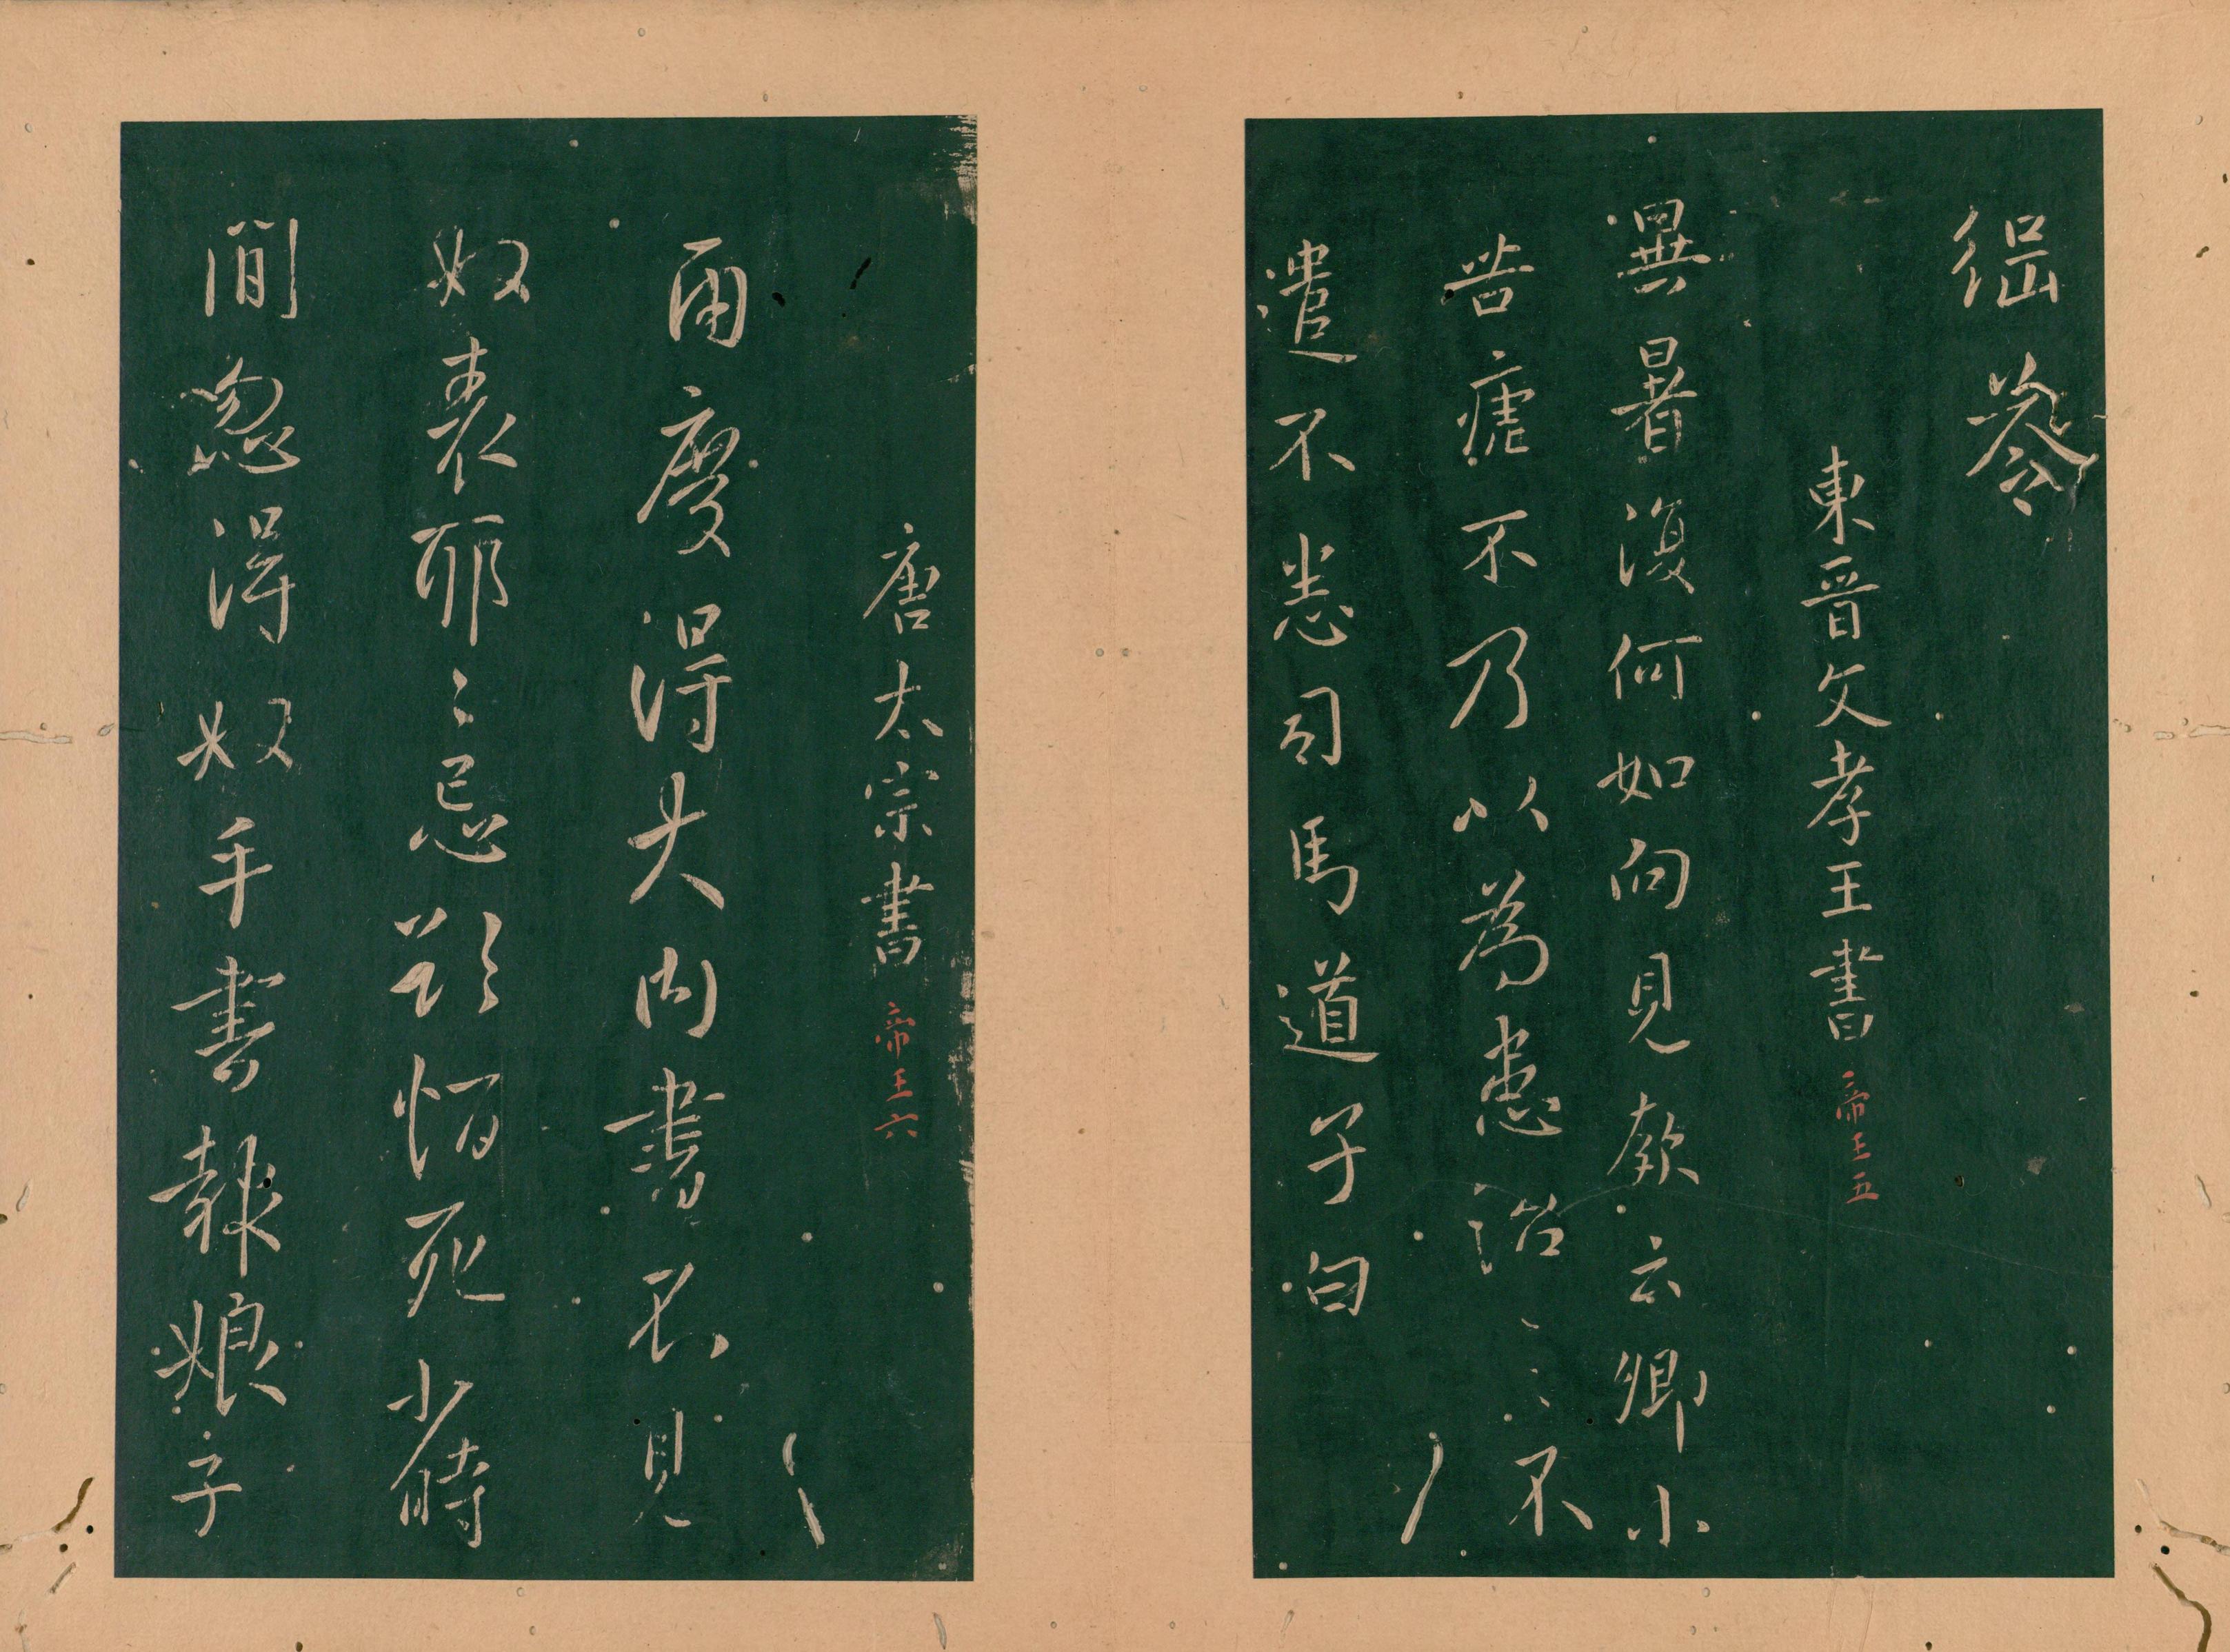 答
東晉文孝王書 帝王五
異暑復何如向見歡云卿小
苦瘧不乃以為患治之不
遣不悉司馬道子白
唐太宗書 帝王六
兩度得大內書不見
奴表耶〻忌欲恒死少時
間忽得奴手書報娘子